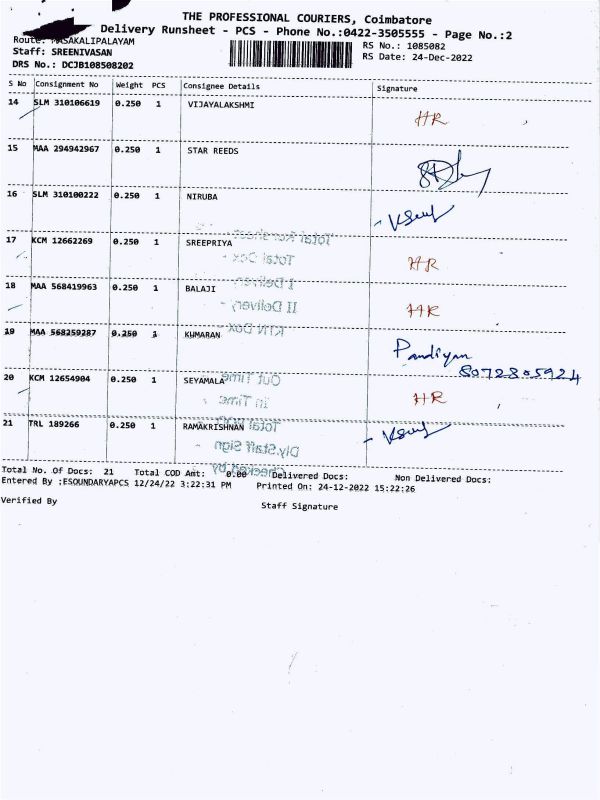 THE PROFESSIONAL COURIERS, Coimbatore
Delivery Runsheet - PCS - Phone No.:0422-3505555 - Page No.:2
Route: MASAKALIPALAYAM
RS No.: 1085082
Staff: SREENIVASAN
RS Date: 24-Dec-2022
DRS No.: DCJB108508202
S No Consignment No Weight PCS Consignee Details Signature
14 SLM 310106619 0.250 1 VIJAYALAKSHMI HR
15 MAA 294942967 0.250 1 STAR REEDS
16 SLM 310100222 0.250 1 NIRUBA
Total Runsheet
17 KCM 12662269 0.250 1 SREEPRIYA HR
Total Dox -
I Delivery -
18 MAA 568419963 0.250 1 BALAJI HR
II Delivery -
KTN Dox -
19 MAA 568259287 0.250 1 KUMARAN Pandiyan
8072805924
20 KCM 12654904 0.250 1 SEYAMALA HR
Out Time
In Time -
21 TRL 189266 0.250 1 RAMAKRISHNAN
Total
Dly.Staff Sign -
Checked by
Total No. Of Docs: 21 Total COD Amt: 0.00 Delivered Docs: Non Delivered Docs:
Entered By :ESOUNDARYAPCS 12/24/22 3:22:31 PM Printed On: 24-12-2022 15:22:26
Verified By Staff Signature